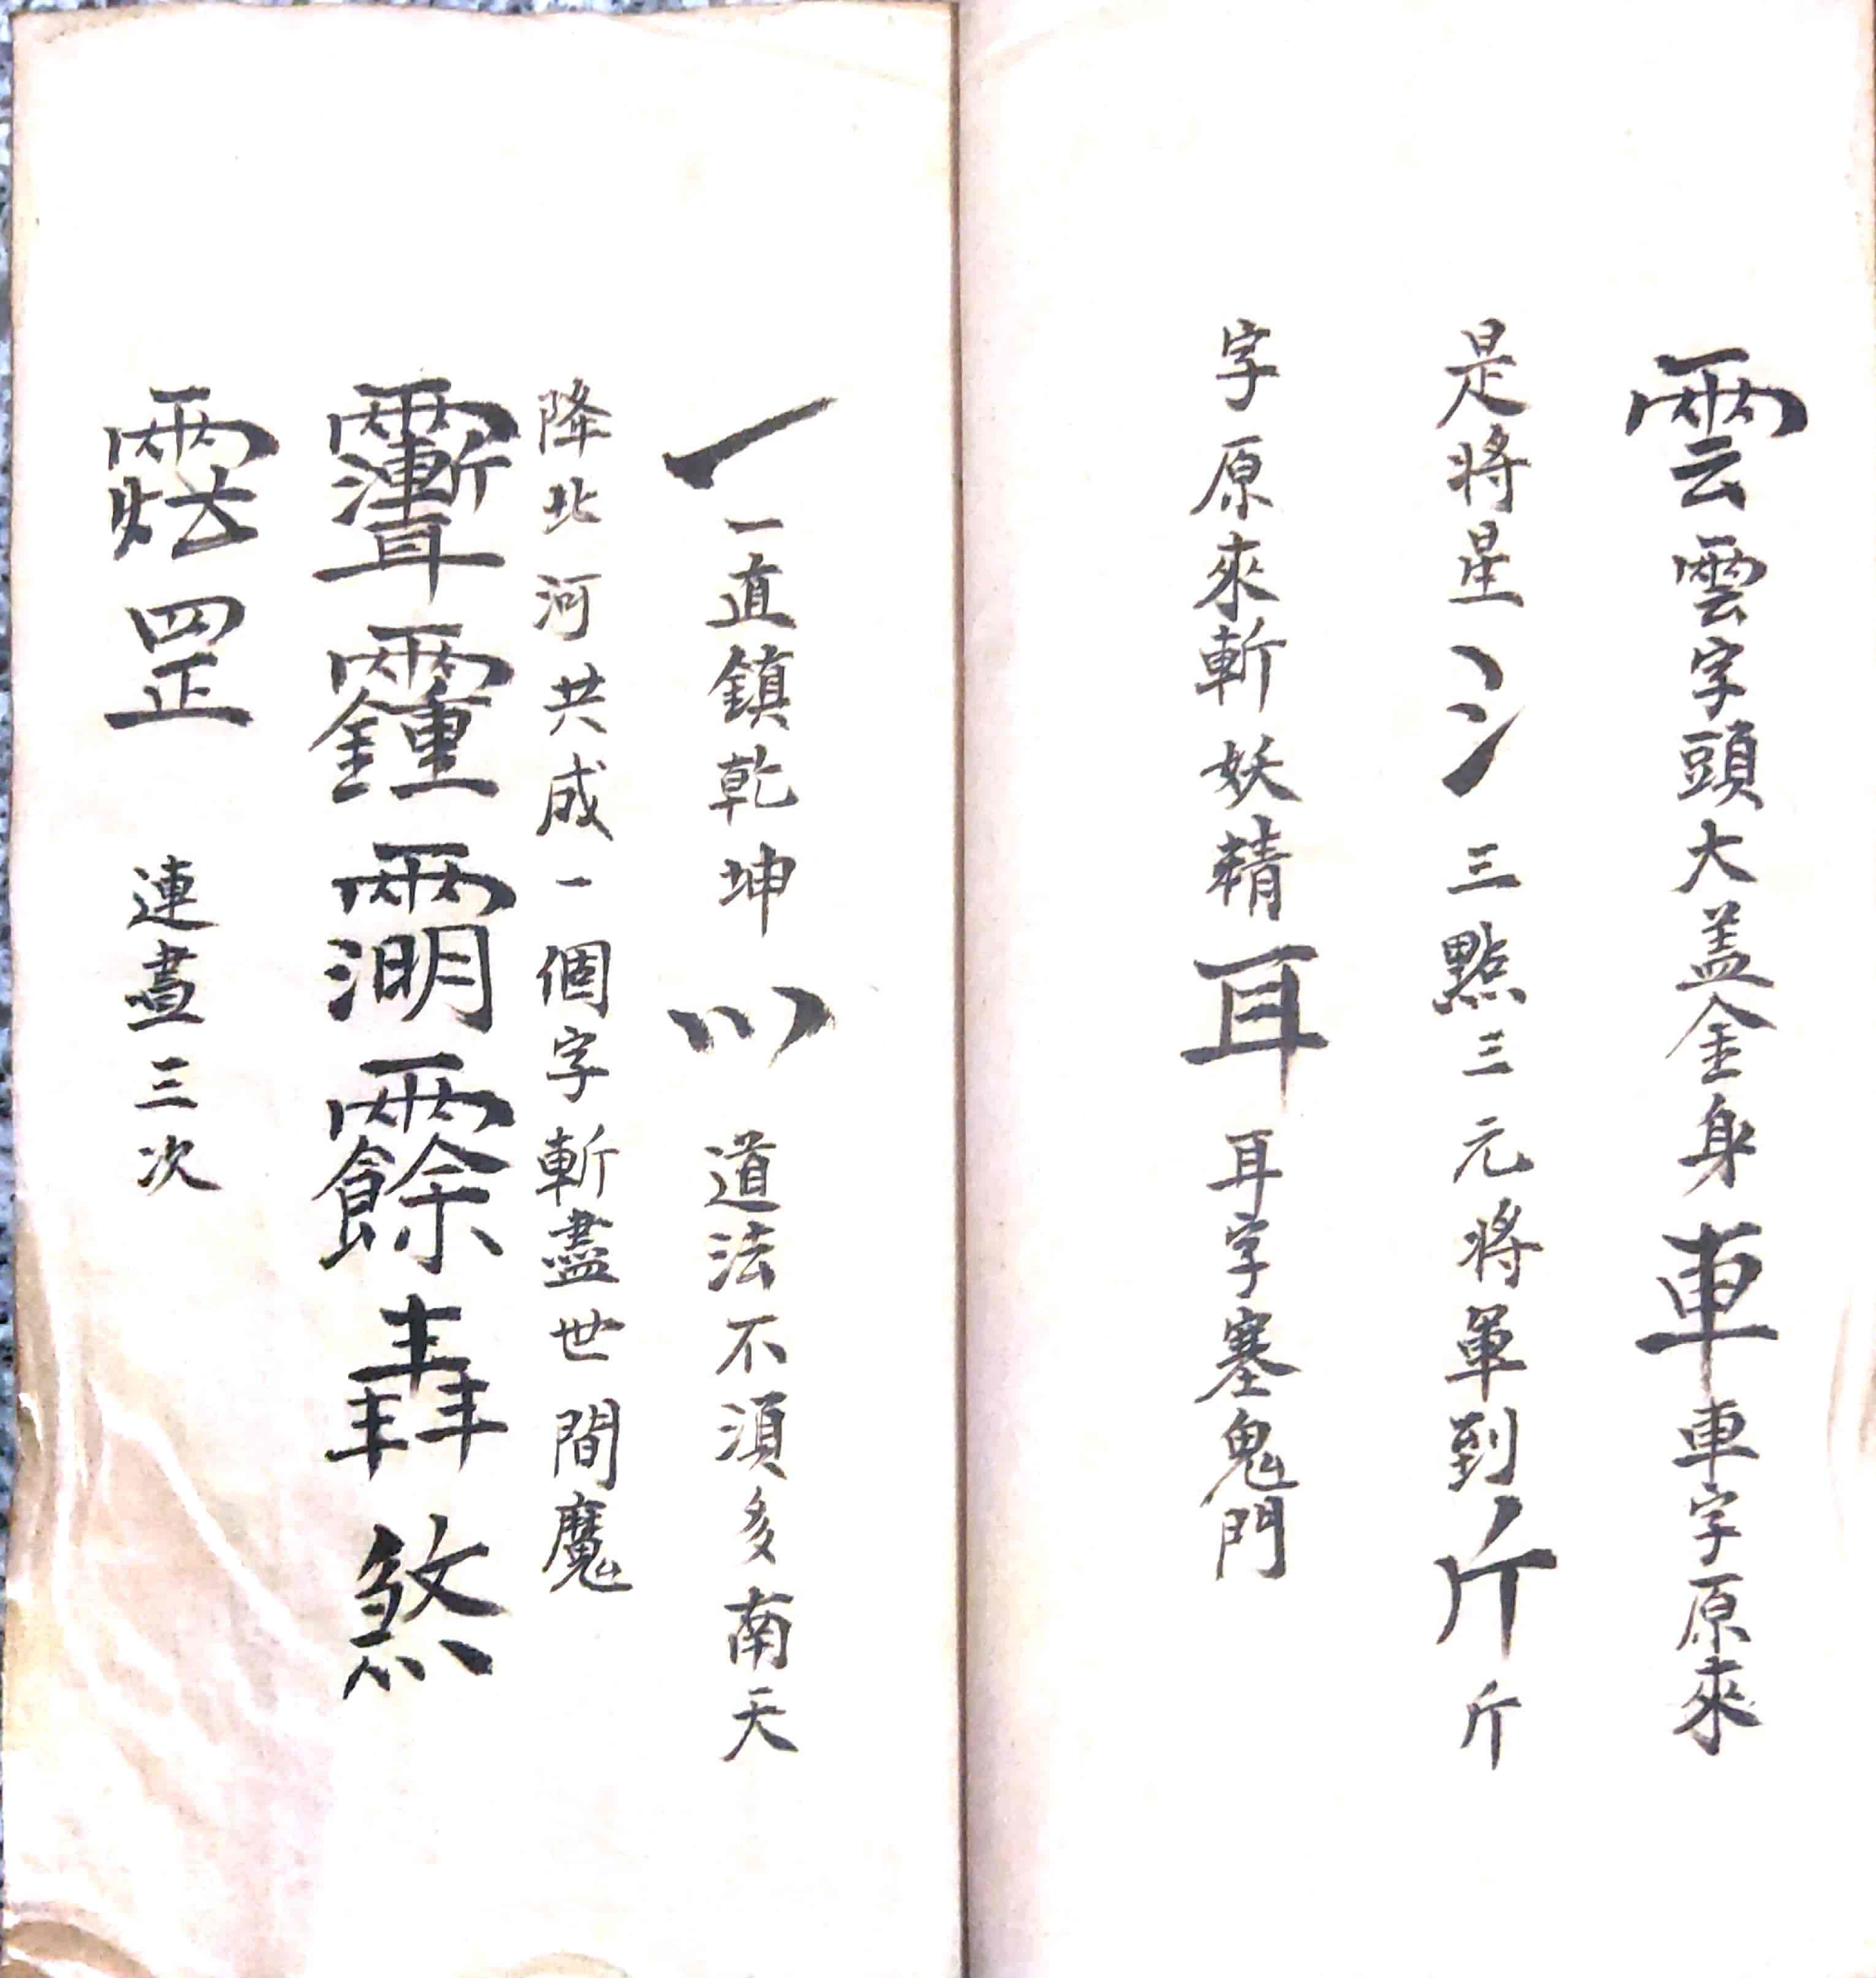 雲雲字頭大盖金身車車字原來
是將星氵三點三元將軍到斤斤
字原來斬妖精耳耳字塞鬼門
一一直鎮乾坤灬道法不須多南天
降北河共成一個字斬盡世間魔
煞
罡連畫三次